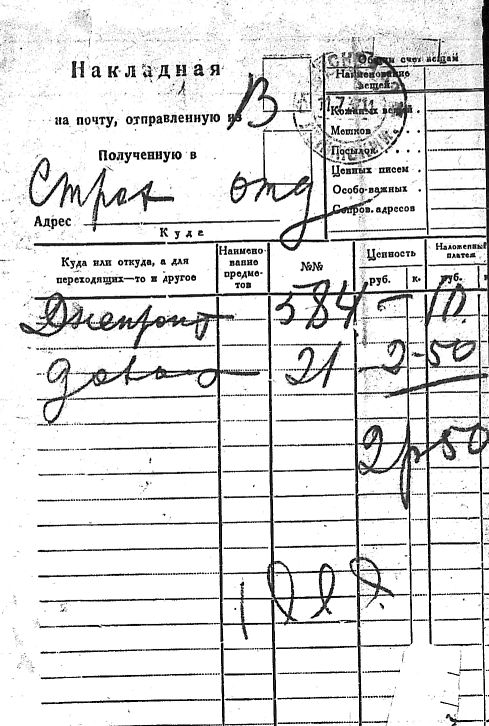 Накладная
на почту, отправленную из
В
Полученную в
Страх отд
Адрес
Куда
Общий счет вещам
Наименование вещей
Кожаных вещей
Мешков
Посылок
Ценных писем
Особо-важных
Сопров. адресов
Куда или откуда, а для переходящих—то и другое
Наимено-
вание
предме-
тов
№№
Ценность
руб. к.
Наложенный
платеж
руб. к.
Днепроп 584
21 2-50
2р50